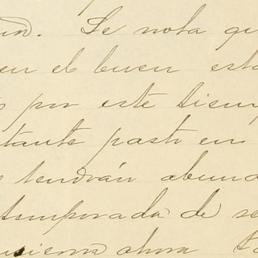 Se nota qu
en el buen esta
por este tiem
tante pasto en
tendrán abund
temporada de se
ahora